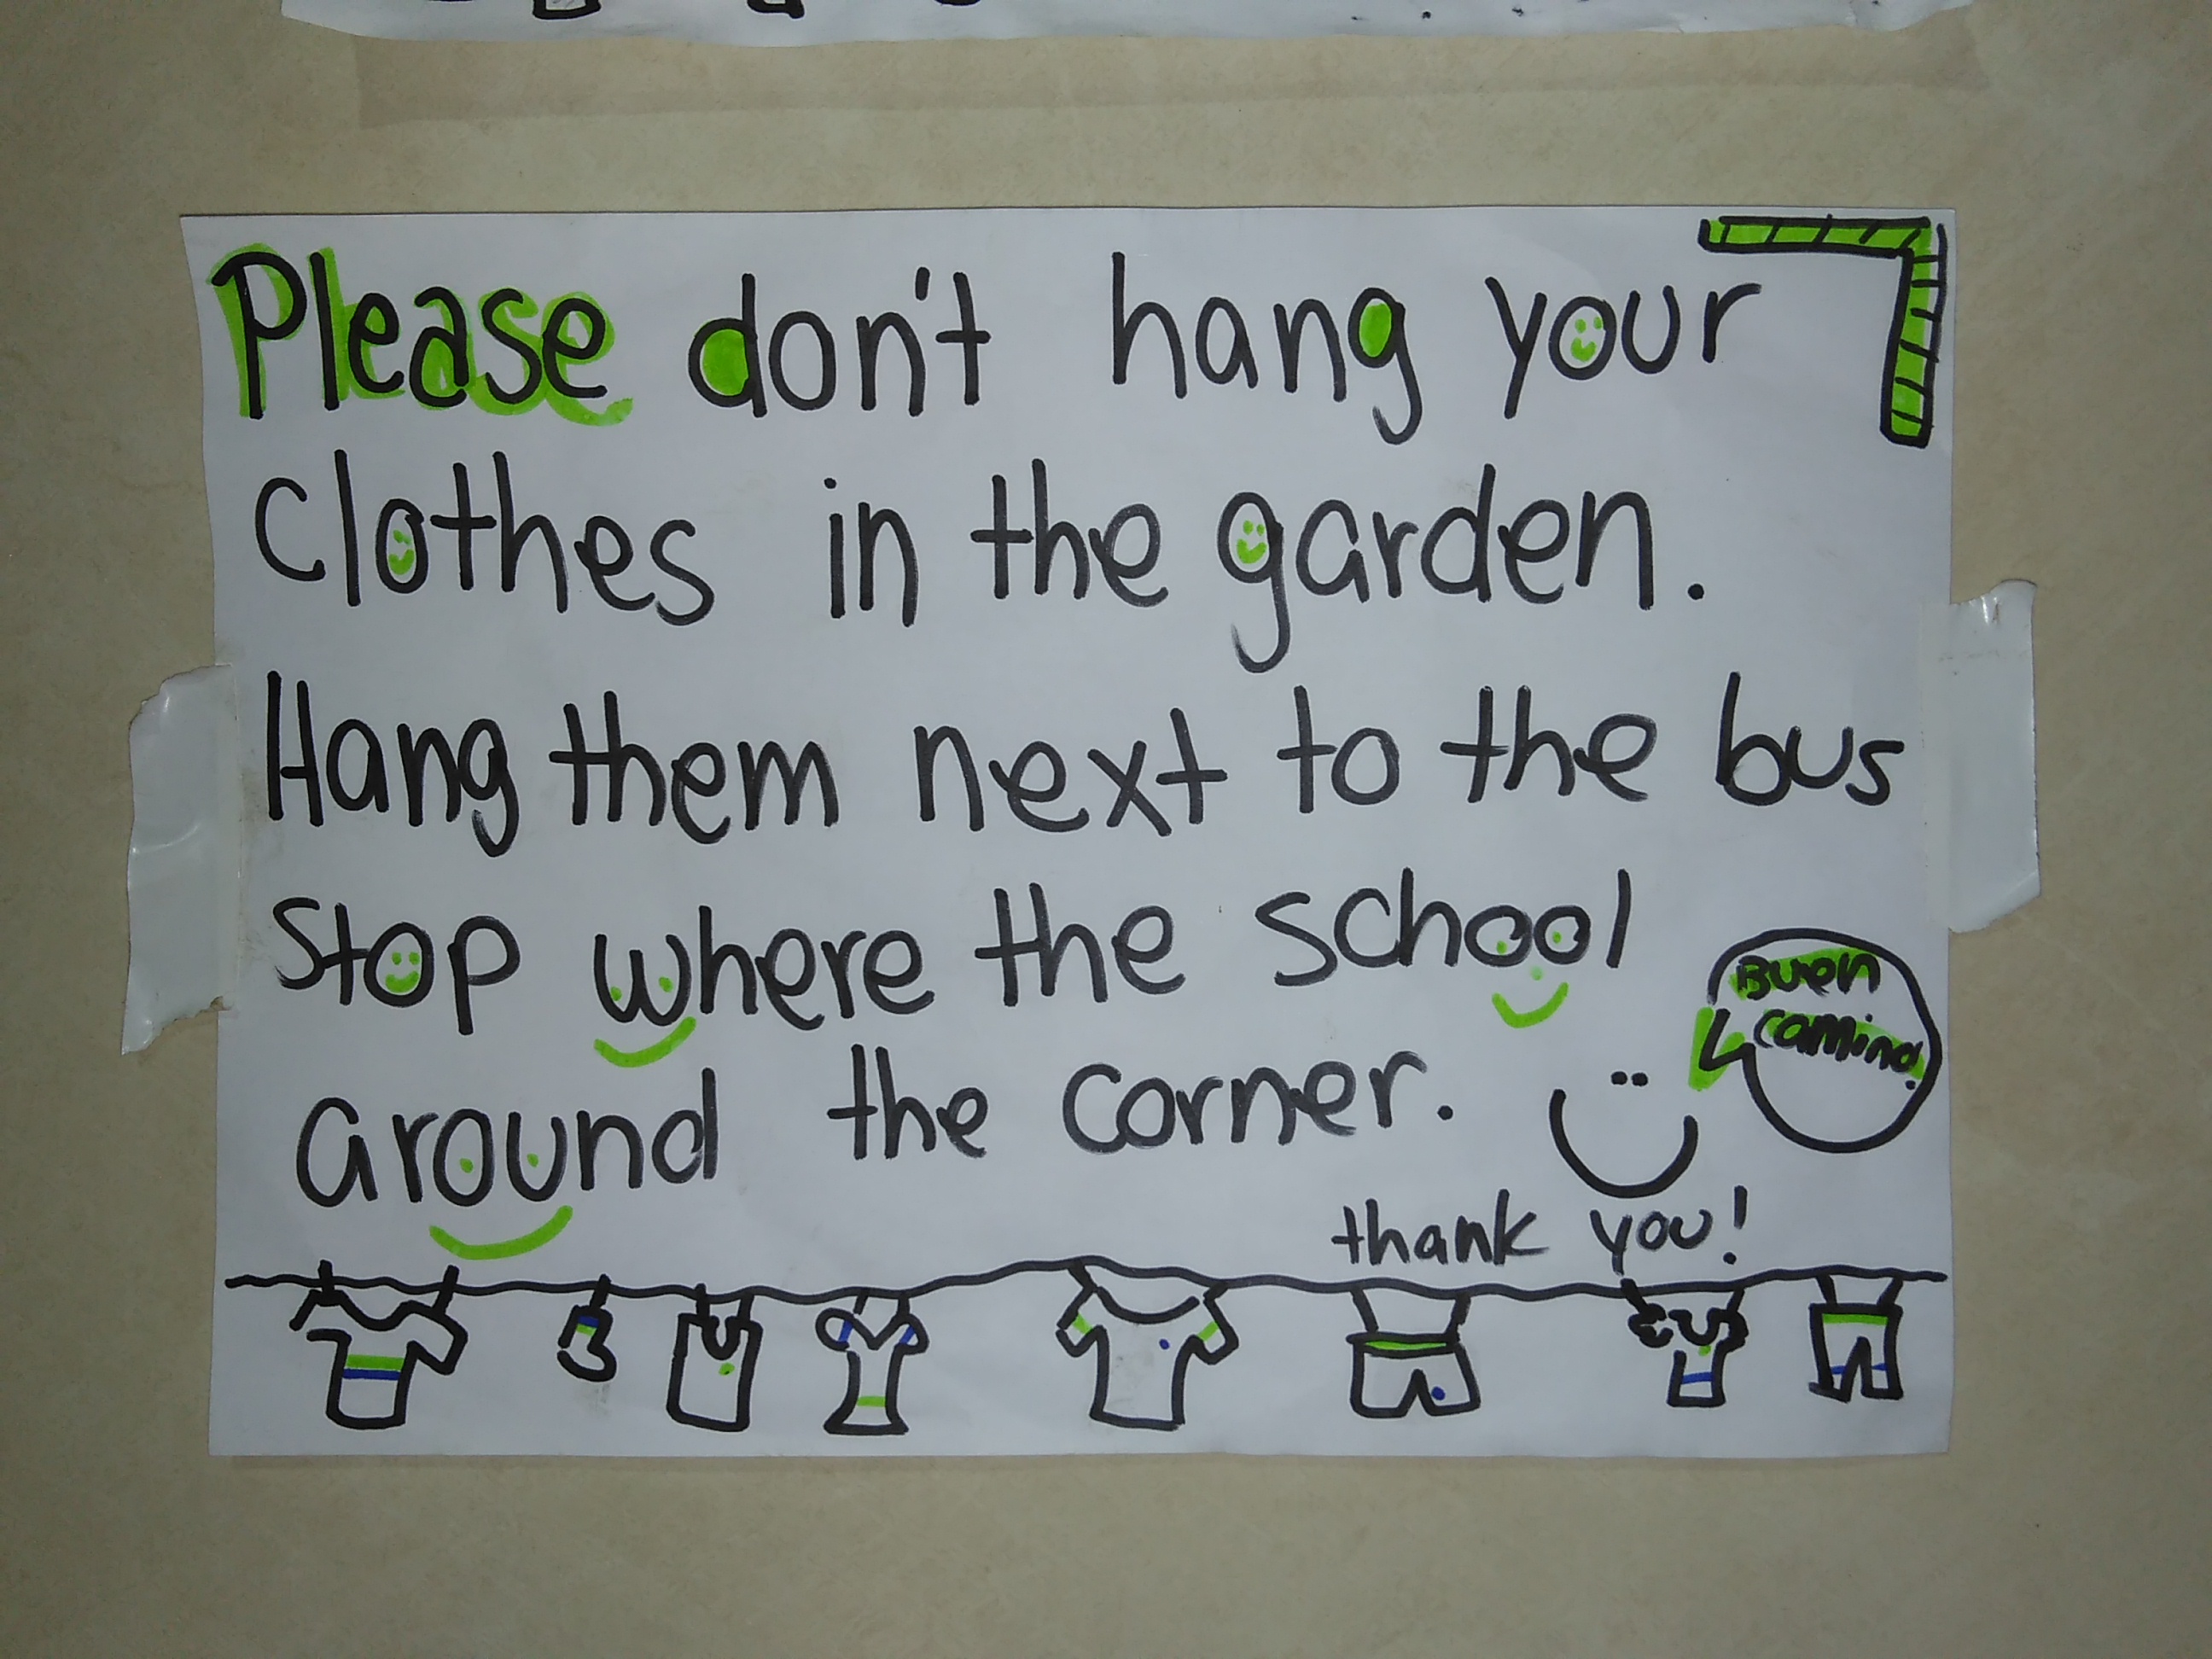 Please don't hang your
clothes in the garden.
Hang them next to the bus
stop where the school
around the corner.
Buen
camino.
thank you!